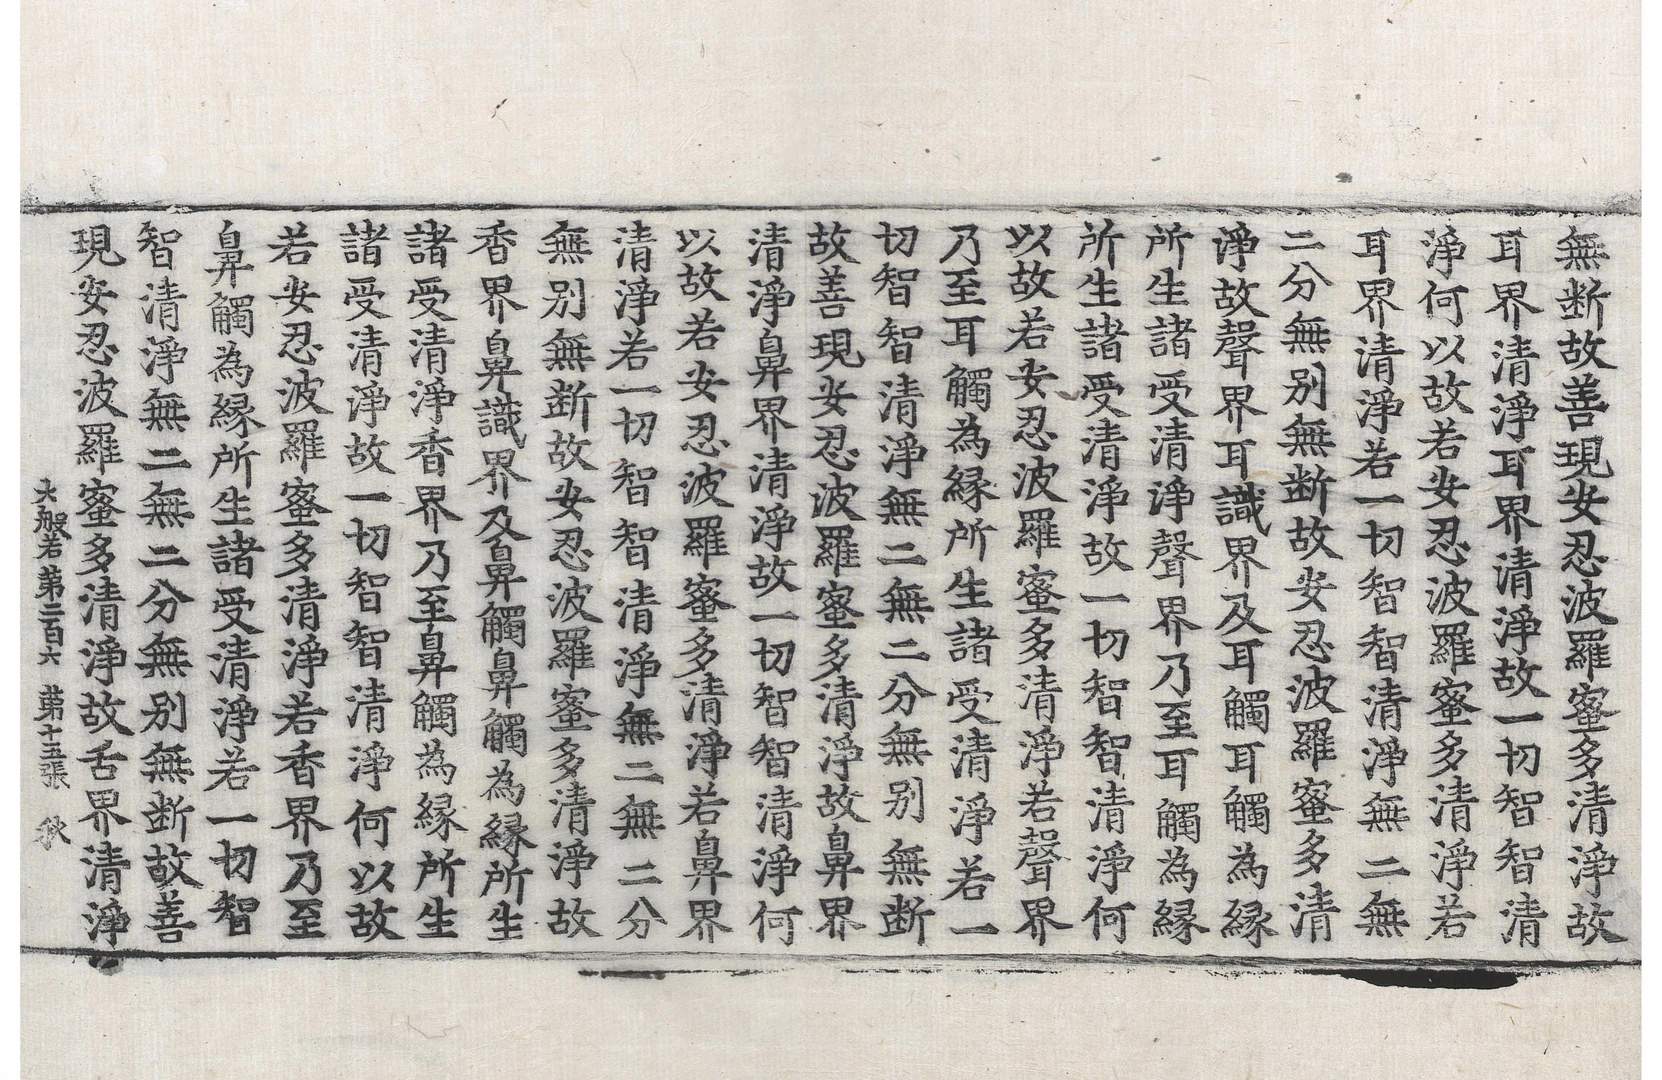 無断故善現安忍波羅蜜多清淨故
耳界清淨耳界清淨故一切智智清
淨何以故若安忍波羅蜜多清淨若
耳界清淨若一切智智清淨無二無
二分無别無断故安忍波羅蜜多清
淨故聲界耳識界及耳觸耳觸為縁
所生諸受清淨聲界乃至耳觸為縁
所生諸受清淨故一切智智清淨何
以故若安忍波羅蜜多清淨若聲界
乃至耳觸為縁所生諸受清淨若一
切智智清淨無二無二分無别無断
故善現安忍波羅蜜多清淨故鼻界
清淨鼻界清淨故一切智智清淨何
以故若安忍波羅蜜多清淨若鼻界
清淨若一切智智清淨無二無二分
無别無断故安忍波羅蜜多清淨故
香界鼻識界及鼻觸鼻觸為縁所生
諸受清淨香界乃至鼻觸為縁所生
諸受清淨故一切智智清淨何以故
若安忍波羅蜜多清淨若香界乃至
鼻觸為縁所生諸受清淨若一切智
智清淨無二無二分無别無断故善
現安忍波羅蜜多清淨故舌界清淨
大般若第二百六 第十五張 秋